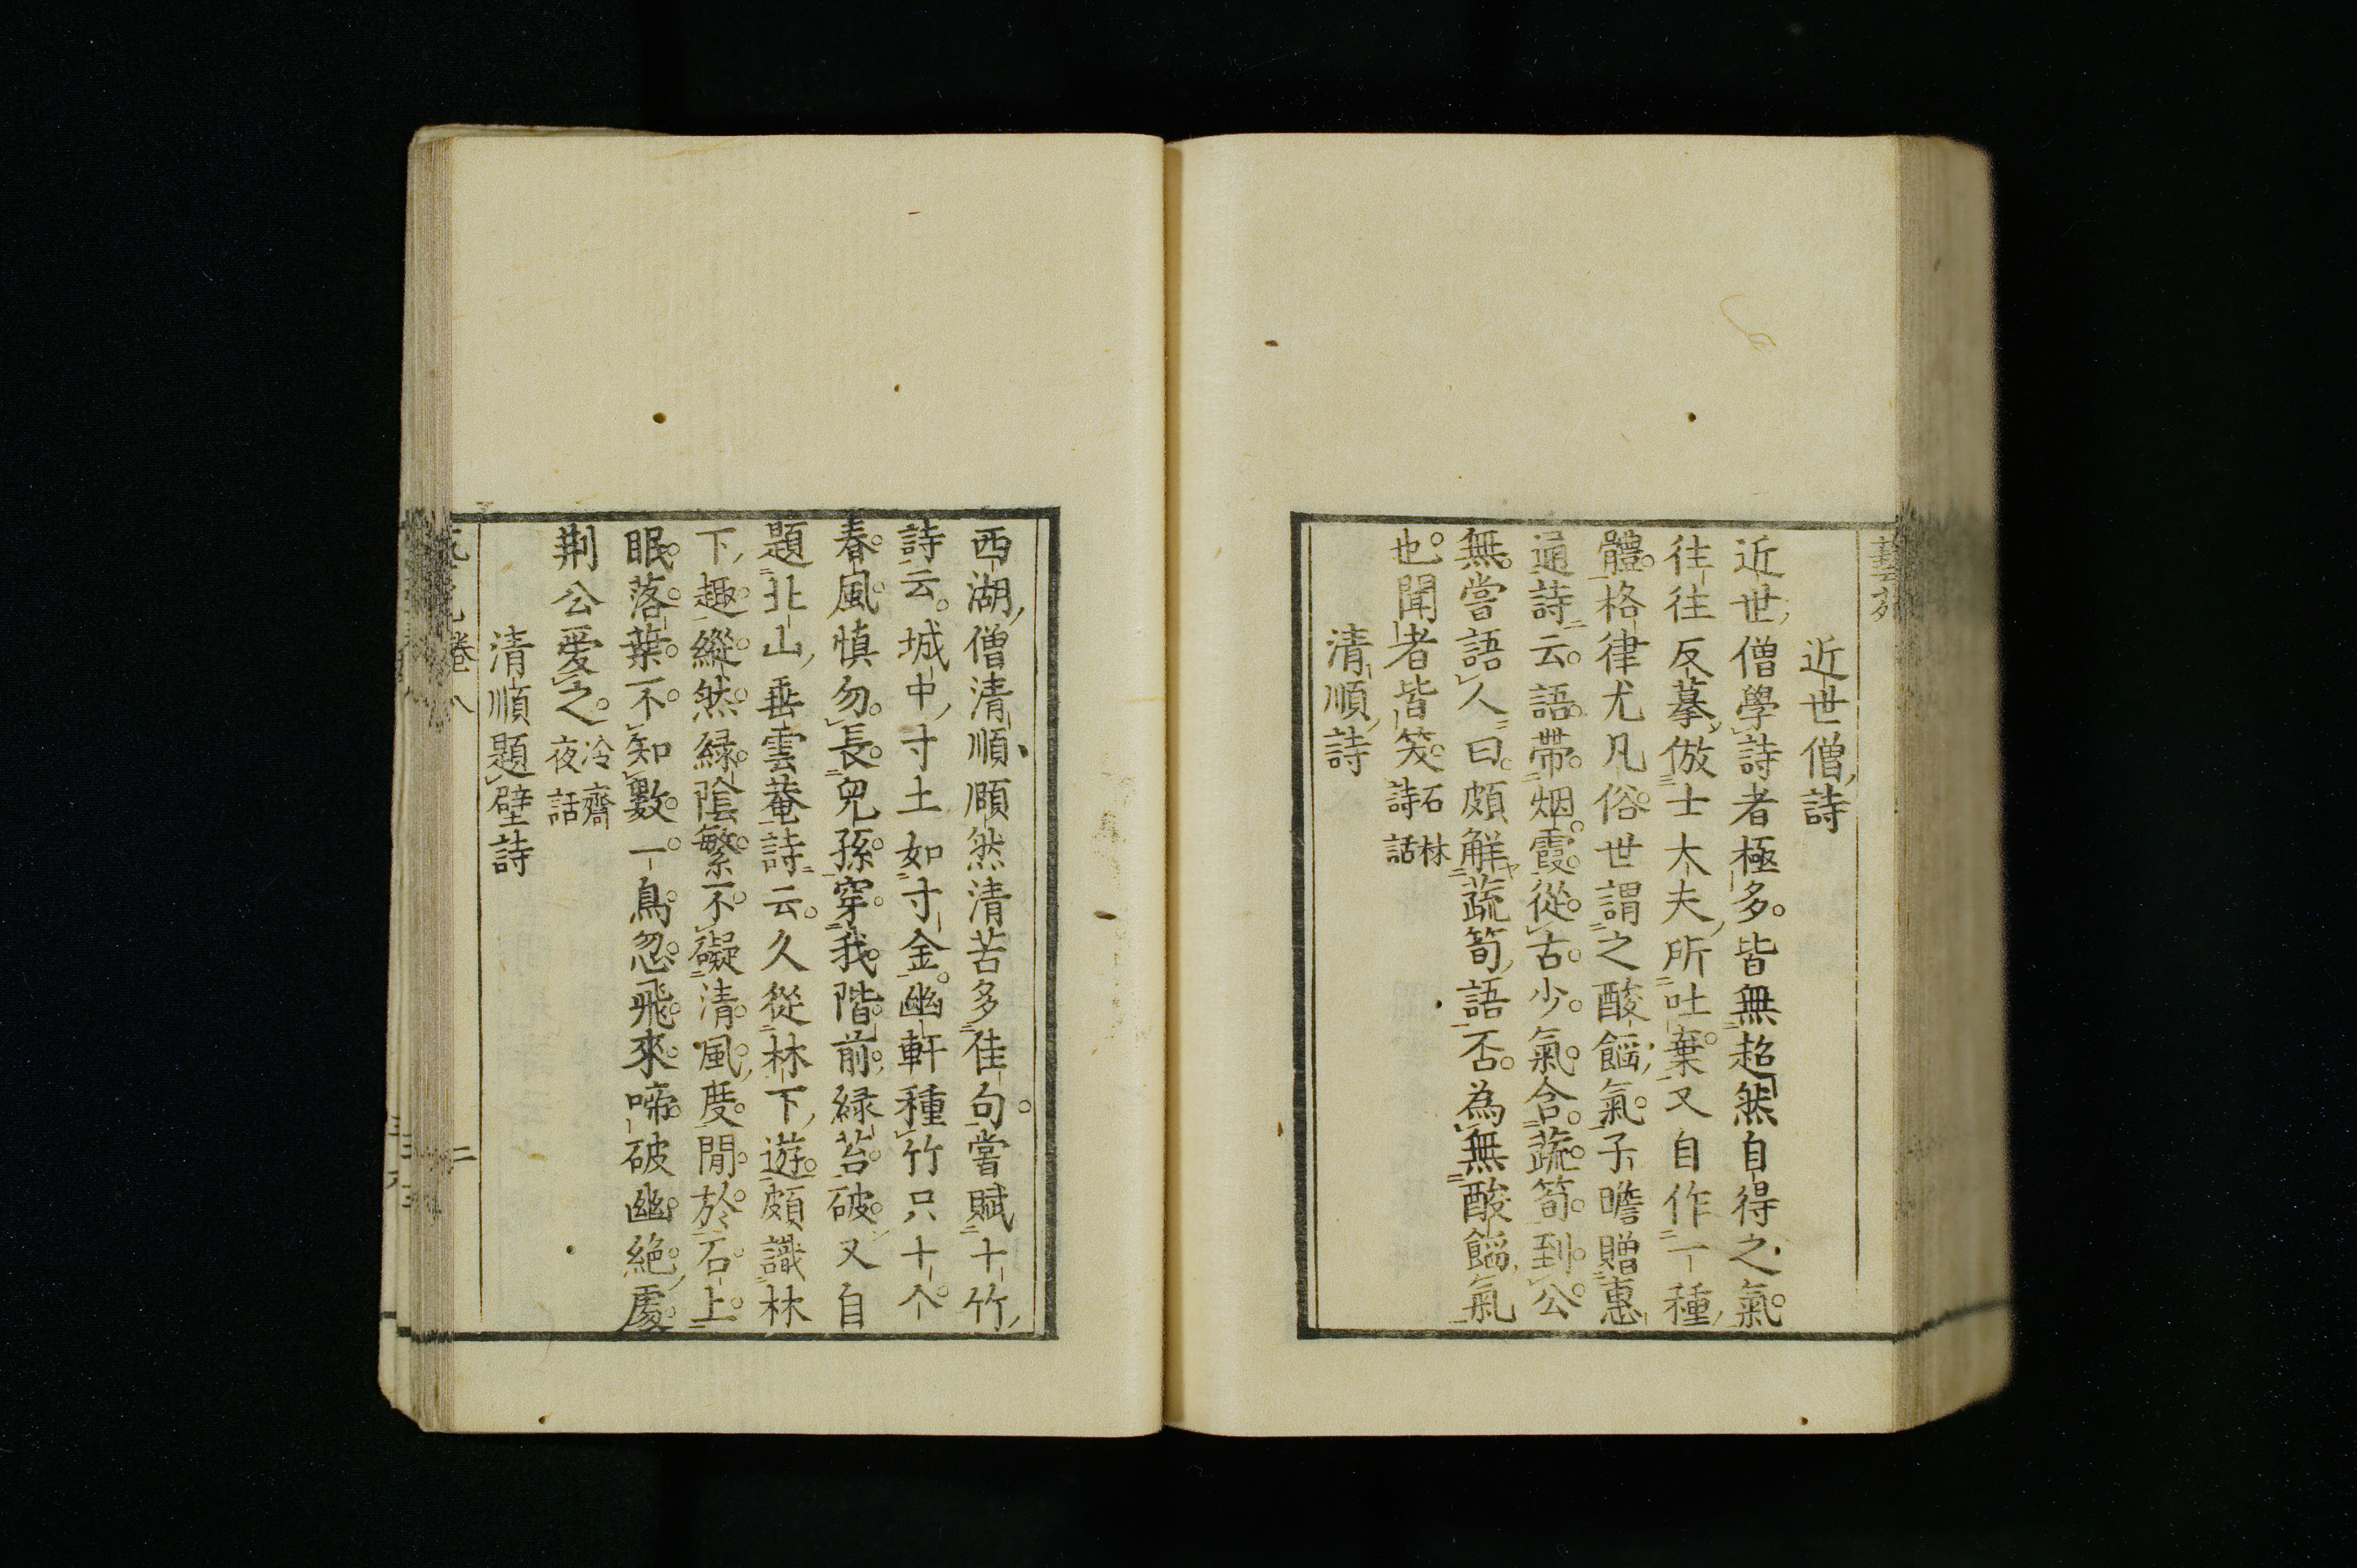 近世僧詩
近世僧學詩者極多皆無超然自得之氣
往往反摹倣士大夫所吐棄又自作一種
體格律尤凡俗世謂之酸餡氣子瞻贈惠
通詩云語帶烟霞從古少氣含蔬筍到公
無嘗語人曰頗解蔬筍語否為無酸餡氣
也聞者皆笑石林詩話
清順詩
西湖僧清順頤然清苦多佳句嘗賦十竹
詩云城中寸土如寸金幽軒種竹只十个
春風慎勿長兒孫穿我階前綠苔破又自
題北山垂雲菴詩云久從林下遊頗識林
下趣縱然綠陰繁不礙清風度閒於石上
眠落葉不知數一鳥忽飛來啼破幽絕處
荆公愛之冷齋夜話
清順題壁詩
卷八 二